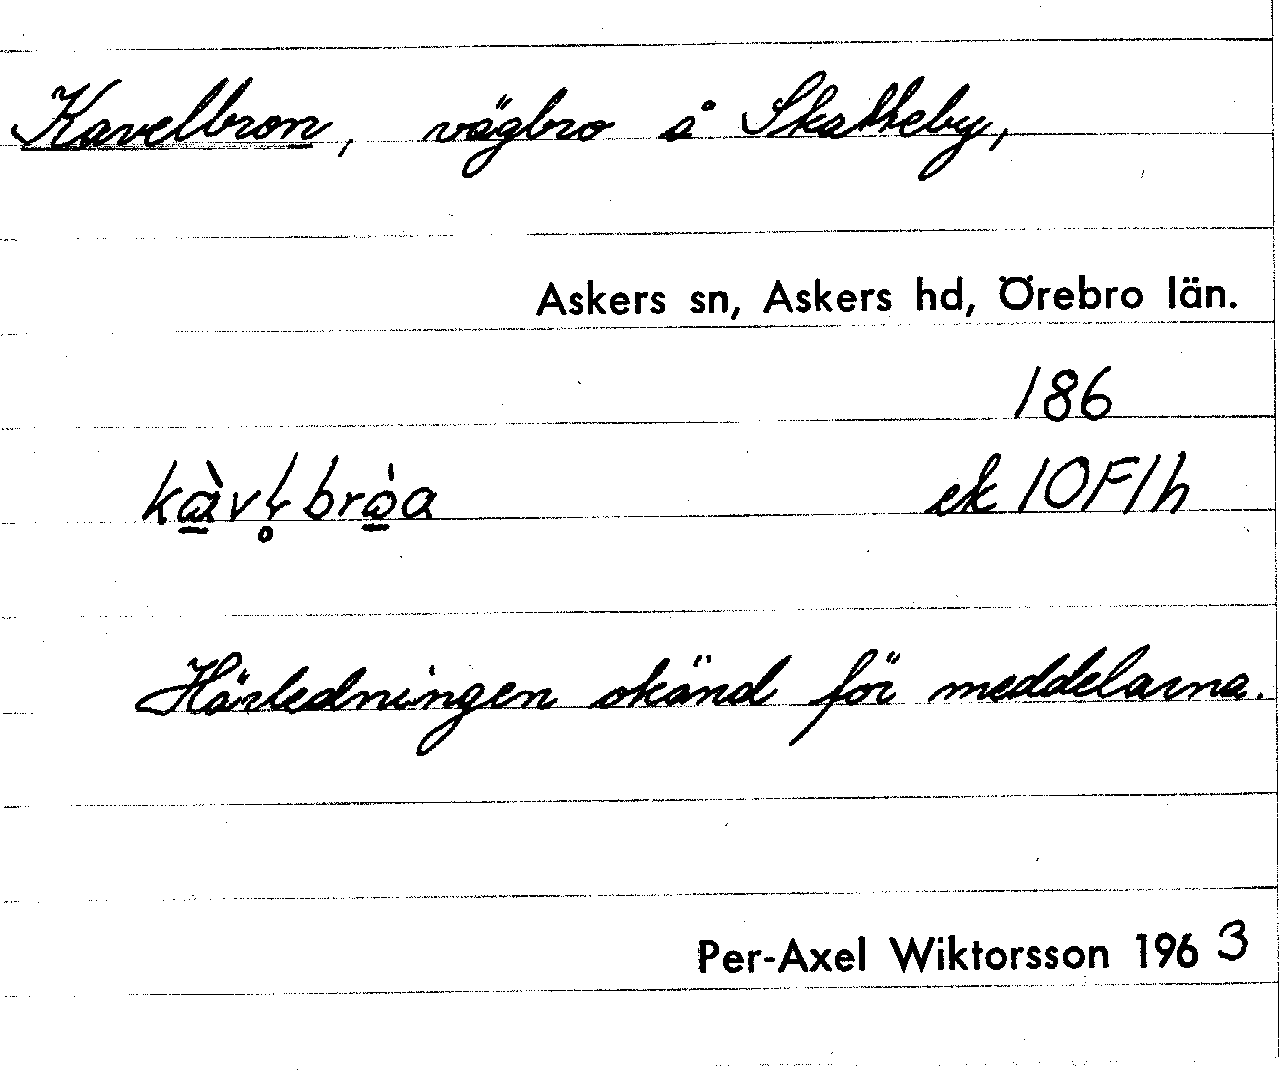 Kavelbron, vägbro å Skatteby,
Askers sn, Askers hd, Örebro län.
186
ek 10F1h
Härledningen okänd för meddelarna.
Per-Axel Wiktorsson 1963